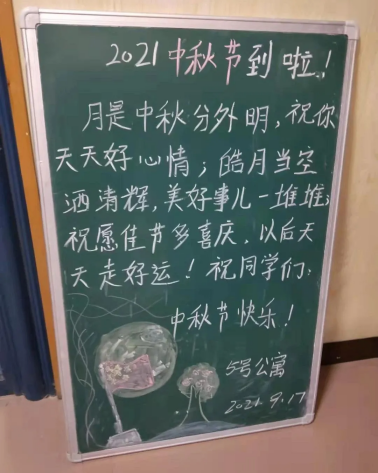 2021中秋节到啦！
月是中秋分外明，祝你
天天好心情；皓月当空
洒清辉，美好事儿一堆堆；
祝愿佳节多喜庆，以后天
天走好运！祝同学们：
中秋节快乐！
5号公寓
2021.9.17